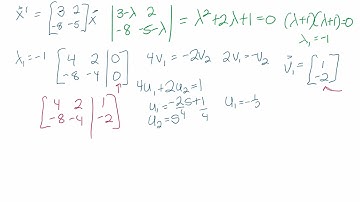 ẋ' = [3 2 -8 -5] ẋ |3-λ 2 -8 -5-λ| = λ²+2λ+1=0 (λ+1)(λ+1)=0
λ₁=-1
λ₁=-1 [4 2 | 0 -8 -4 | 0] 4v₁ = -2v₂ 2v₁=-v₂ v⃗₁ = [1 -2]
4u₁+2u₂=1
[4 2 | 1 -8 -4 | -2] u₁ = -2s/4 + 1/4
u₂ = s